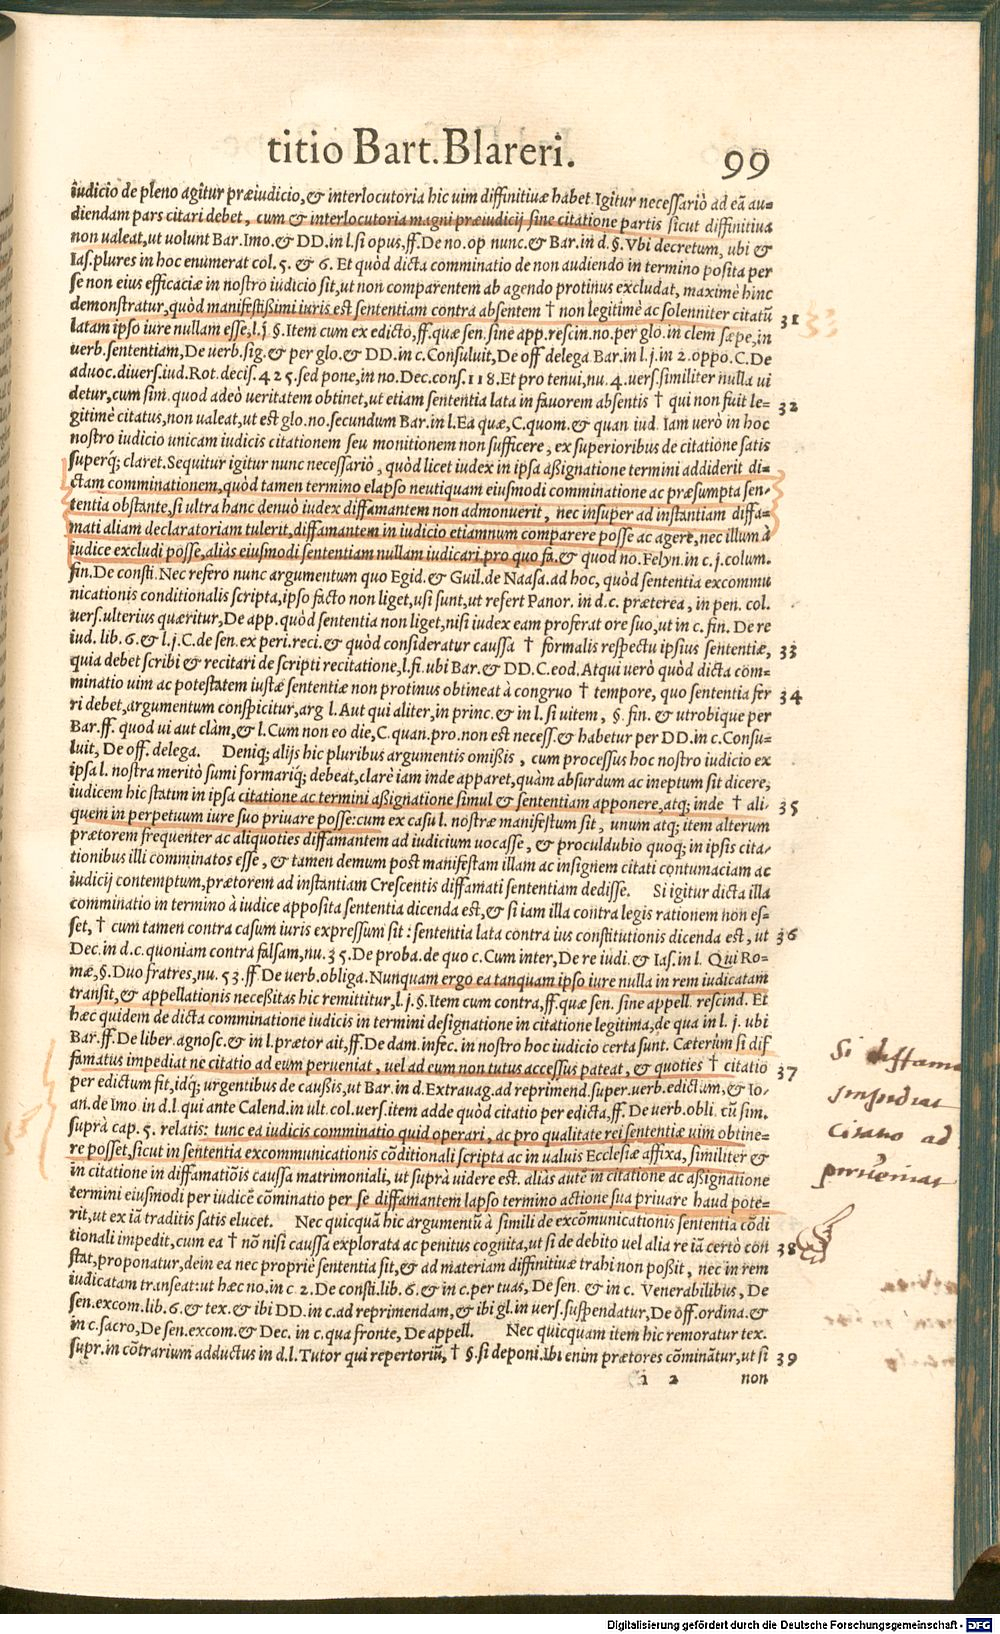 titio Bart. Blareri.
99
iudicio de pleno agitur præiudicio, & interlocutoria hic uim diffinitiuæ habet. Igitur necessariò ad eã au-
diendam pars citari debet, cum & interlocutoria magni præiudicij sine citatione partis sicut diffinitiua
non ualeat, ut uolunt Bar. Imo. & DD. in l. si opus, ff. De no. op nunc. & Bar. in d. §. Vbi decretum, ubi &
Ias. plures in hoc enumerat col. 5. & 6. Et quòd dicta comminatio de non audiendo in termino posita per
se non eius efficaciæ in nostro iudicio sit, ut non comparentem ab agendo protinus excludat, maximè hinc
demonstratur, quòd manifestißimi iuris est sententiam contra absentem † non legitimè ac solenniter citatũ 31
latam ipso iure nullam esse, l. j. §. Item cum ex edicto, ff. quæ sen. sine app. rescin. no. per glo. in clem sæpe, in
uerb. sententiam, De uerb. sig. & per glo. & DD. in c. Consuluit, De off delega Bar. in l. j. in 2. oppo. C. De
aduoc. diuers. iud. Rot. decis. 425. sed pone, in no. Dec. cons. 118. Et pro tenui, nu. 4. uers. similiter nulla ui
detur, cum sim. quod adeò ueritatem obtinet, ut etiam sententia lata in fauorem absentis † qui non fuit le- 32
gitimè citatus, non ualeat, ut est glo. no. secundum Bar. in l. Ea quæ, C. quom. & quan iud. Iam uerò in hoc
nostro iudicio unicam iudicis citationem seu monitionem non sufficere, ex superioribus de citatione satis
superq; claret. Sequitur igitur nunc necessariò, quòd licet iudex in ipsa aßignatione termini addiderit di-
ctam comminationem, quòd tamen termino elapso neutiquam eiusmodi comminatione ac præsumpta sen-
tentia obstante, si ultra hanc denuò iudex diffamantem non admonuerit, nec insuper ad instantiam diffa-
mati aliam declaratoriam tulerit, diffamantem in iudicio etiamnum comparere posse ac agere, nec illum à
iudice excludi posse, aliàs eiusmodi sententiam nullam iudicari pro quo fa. & quod no. Felyn. in c. j. colum.
fin. De consti. Nec refero nunc argumentum quo Egid. & Guil. de Naasa. ad hoc, quòd sententia excommu
nicationis conditionalis scripta, ipso facto non liget, usi sunt, ut refert Panor. in d. c. præterea, in pen. col.
uers. ulterius quæritur, De app. quòd sententia non liget, nisi iudex eam proferat ore suo, ut in c. fin. De re
iud. lib. 6. & l. j. C. de sen. ex peri. reci. & quòd consideratur caussa † formalis respectu ipsius sententiæ, 33
quia debet scribi & recitari de scripti recitatione, l. fi. ubi Bar. & DD. C. eod. Atqui uerò quòd dicta com-
minatio uim ac potestatem iustæ sententiæ non protinus obtineat à congruo † tempore, quo sententia fer 34
ri debet, argumentum conspicitur, arg l. Aut qui aliter, in princ. & in l. si uitem, §. fin. & utrobique per
Bar. ff. quod ui aut clàm, & l. Cum non eo die, C. quan. pro. non est necess. & habetur per DD. in c. Consu-
luit, De off. delega. Deniq; alijs hic pluribus argumentis omißis, cum processus hoc nostro iudicio ex
ipsa l. nostra meritò sumi formariq; debeat, clarè iam inde apparet, quàm absurdum ac ineptum sit dicere,
iudicem hic statim in ipsa citatione ac termini aßignatione simul & sententiam apponere, atq; inde † ali- 35
quem in perpetuum iure suo priuare posse: cum ex casu l. nostræ manifestum sit, unum atq; item alterum
prætorem frequenter ac aliquoties diffamantem ad iudicium uocasse, & proculdubio quoq; in ipsis cita-
tionibus illi comminatos esse, & tamen demum post manifestam illam ac insignem citati contumaciam ac
iudicij contemptum, prætorem ad instantiam Crescentis diffamati sententiam dedisse. Si igitur dicta illa
comminatio in termino à iudice apposita sententia dicenda est, & si iam illa contra legis rationem non es-
set, † cum tamen contra casum iuris expressum sit: sententia lata contra ius constitutionis dicenda est, ut 36
Dec. in d. c. quoniam contra falsam, nu. 35. De proba. de quo c. Cum inter, De re iudi. & Ias. in l. Qui Ro-
mæ, §. Duo fratres, nu. 53. ff De uerb. obliga. Nunquam ergo ea tanquam ipso iure nulla in rem iudicatam
transit, & appellationis neceßitas hic remittitur, l. j. §. Item cum contra, ff. quæ sen. sine appell. rescind. Et
hæc quidem de dicta comminatione iudicis in termini designatione in citatione legitima, de qua in l. j. ubi
Bar. ff. De liber. agnosc. & in l. prætor ait, ff. De dam. infec. in nostro hoc iudicio certa sunt. Cæterùm si dif
famatus impediat ne citatio ad eum perueniat, uel ad eum non tutus accessus pateat, & quoties † citatio 37
per edictum fit, idq; urgentibus de caußis, ut Bar. in d. Extrauag. ad reprimend. super. uerb. edictum, & Io-
an. de Imo in d. l. qui ante Calend. in ult. col. uers. item adde quòd citatio per edicta, ff. De uerb. obli. cũ sim.
suprà cap. 5. relatis: tunc ea iudicis comminatio quid operari, ac pro qualitate rei sententiæ uim obtine-
re posset, sicut in sententia excommunicationis cõditionali scripta ac in ualuis Ecclesiæ affixa, similiter &
in citatione in diffamatiõis caussa matrimoniali, ut suprà uidere est. aliàs autẽ in citatione ac aßignatione
termini eiusmodi per iudicẽ cõminatio per se diffamantem lapso termino actione sua priuare haud pote-
rit, ut ex iã traditis satis elucet. Nec quicquã hic argumentũ à simili de excõmunicationis sententia cõdi
tionali impedit, cum ea † nõ nisi caussa explorata ac penitus cognita, ut si de debito uel alia re iã certò con 38
stat, proponatur, dein ea nec propriè sententia sit, & ad materiam diffinitiuæ trahi non poßit, nec in rem
iudicatam transeat: ut hæc no. in c. 2. De consti. lib. 6. & in c. per tuas, De sen. & in c. Venerabilibus, De
sen. excom. lib. 6. & tex. & ibi DD. in c. ad reprimendam, & ibi gl. in uers. suspendatur, De off. ordina. &
in c. sacro, De sen. excom. & Dec. in c. qua fronte, De appell. Nec quicquam item hic remoratur tex.
supr. in cõtrarium adductus in d. l. Tutor qui repertoriũ, † §. si deponi. Ibi enim prætores cõminãtur, ut si 39
i 2 non
Si diffama
impediat
Citatio ad
perveniat
Digitalisierung gefördert durch die Deutsche Forschungsgemeinschaft - DFG